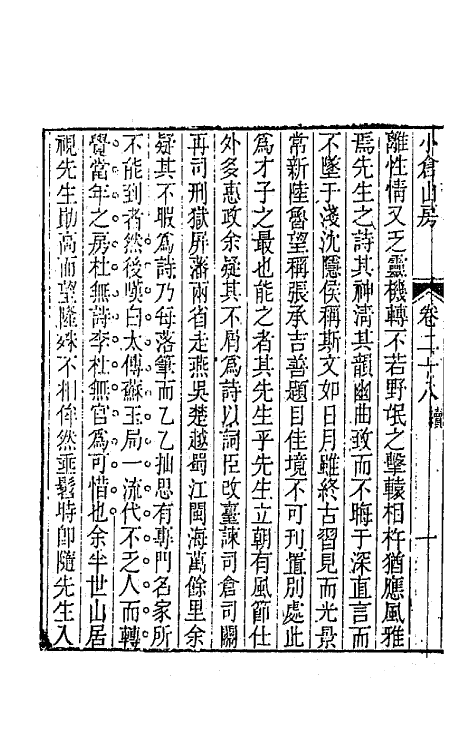 小倉山房　卷二十八　續　一
離性情又乏靈機轉不若野氓之擊轅相杵猶應風雅
焉先生之詩其神清其韻幽曲致而不晦于深直言而
不墜于淺沈隱侯稱斯文如日月雖終古習見而光景
常新陸魯望稱張承吉善題目佳境不可刊置別處此
爲才子之最也能之者其先生乎先生立朝有風節仕
外多惠政余疑其不屑爲詩以詞臣改臺諫司倉司關
再司刑獄屏藩兩省走燕吳楚越蜀江閩海萬餘里余
疑其不暇爲詩乃每落筆而乙乙抽思有專門名家所
不能到者然後嘆白太傅蘇玉局一流代不乏人而轉
覺當年之房杜無詩李杜無官爲可惜也余半世山居
視先生助高而望隆殊不相侔然垂髫時卽隨先生入